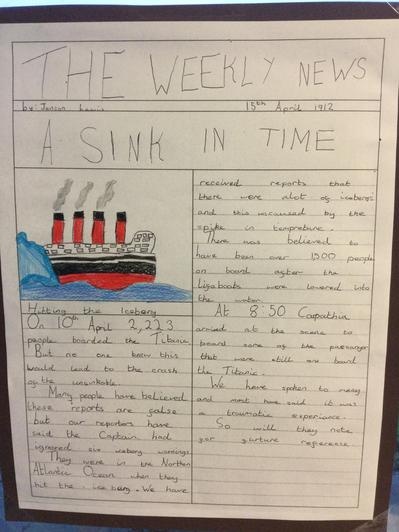 THE WEEKLY NEWS
by: Janson Lewis
15th April 1912
A SINK IN TIME
Hitting the Iceberg
On 10th April 2,223
people boarded the Titanic
! But no one knew this
would lead to the crash
of the unsinkable.
Many people have believed
these reports are false
but our reporters have
said the Captain had
ignored six iceberg warnings.
They were in the Northen
Atlantic Ocean when they
hit the iceberg. We have
received reports that
there were alot of icebergs
and this was caused by the
spike in tempreture.
There was believed to
have been over 1500 people
on board after the
lifeboats were lowered into
the water.
At 8:50 Carpathia
arrived at the scene to
board some of the passenger
that were still on board
the Titanic.
We have spoken to many
and most have said it was
a traumatic experience.
So will they note
for furture reference